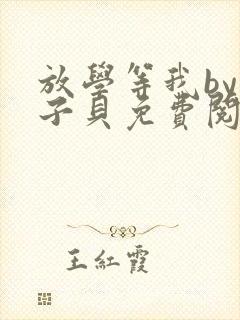 放學等我by
子貝免費閱
王紅霞